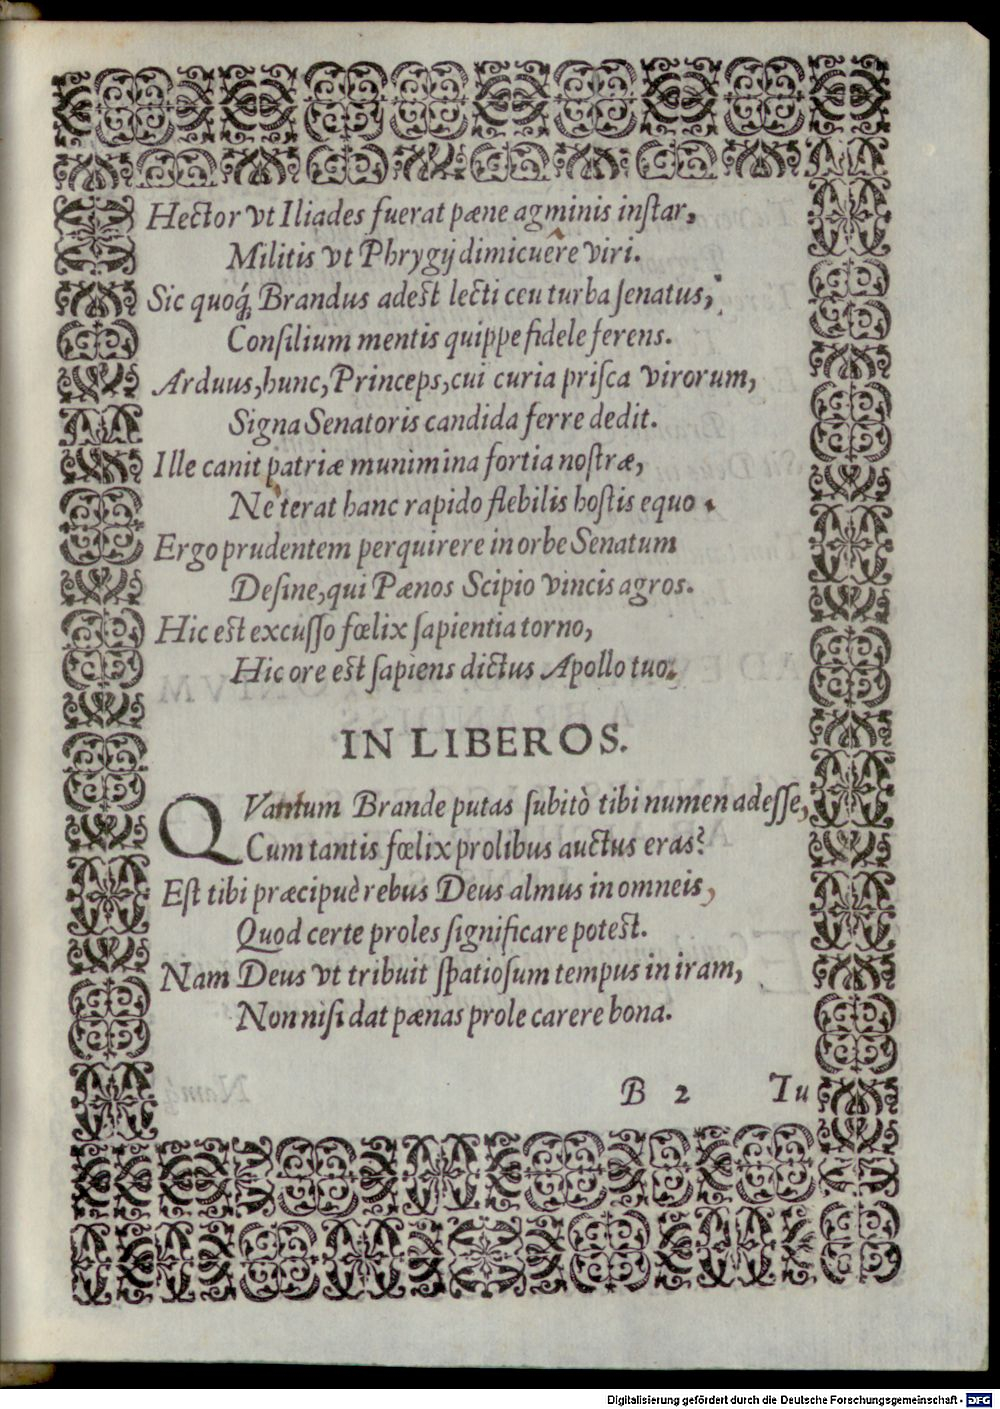 Hector vt Iliades fuerat pæne agminis inſtar,
Militis vt Phrygij dimicuêre viri.
Sic quoq́; Brandus adest lecti ceu turba ſenatus,
Conſilium mentis quippe fidele ferens.
Arduus, hunc, Princeps, cui curia priſca virorum,
Signa Senatoris candida ferre dedit.
Ille canit patriæ munimina fortia noſtræ,
Ne terat hanc rapido flebilis hoſtis equo.
Ergo prudentem perquirere in orbe Senatum
Deſine, qui Pænos Scipio vincis agros.
Hic est excuſſo fœlix ſapientia torno,
Hic ore est ſapiens dictus Apollo tuo.
IN LIBEROS.
QVantum Brande putas ſubitò tibi numen adeſſe,
Cum tantis fœlix prolibus auctus eras?
Eſt tibi præcipuè rebus Deus almus in omneis,
Quod certe proles ſignificare potest.
Nam Deus vt tribuit ſpatioſum tempus in iram,
Non niſi dat pænas prole carere bona.
B 2 Tu
Digitalisierung gefördert durch die Deutsche Forschungsgemeinschaft - DFG